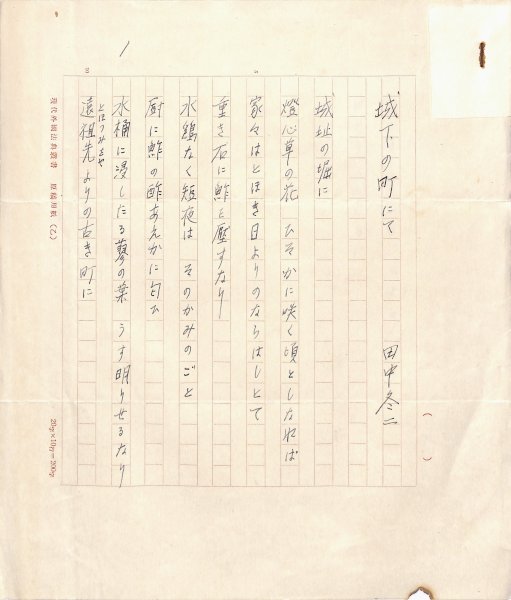 城下の町にて
田中冬二
城址の堀に
燈心草の花 ひそかに咲く頃としなれば
家々はとほき日よりのならはしとて
重き石に鮓を壓すなり
水鶏なく短夜は そのかみのごと
厨に鮓の酢あえかに匂ひ
水桶に浸したる蓼の葉 うす明りせるなり
とほつみおや
遠祖先よりの古き町に
1
5
10
現代外國法典叢書 原稿用紙 (乙)
20字×10行=200字
( )